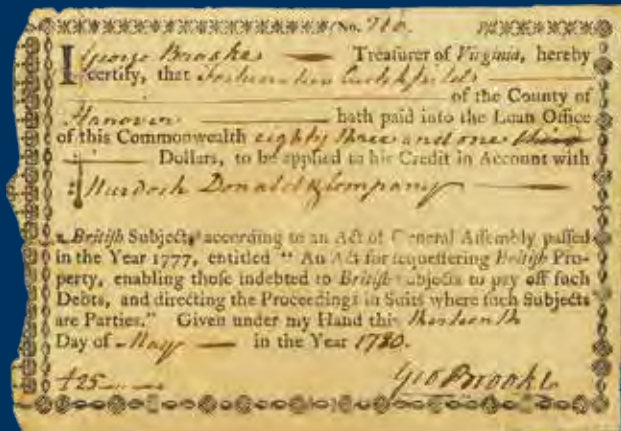 No. 710.
I George Brooke Treasurer of Virginia, hereby
certify, that Crutchfield
of the County of
Hanover hath paid into the Loan Office
of this Commonwealth eighty three and one third
Dollars, to be applied to his Credit in Account with
Murdoch Donald & Company
British Subjects, according to an Act of General Assembly passed
in the Year 1777, entitled "An Act for sequestering British Pro-
perty, enabling those indebted to British subjects to pay off such
Debts, and directing the Proceedings in Suits where such Subjects
are Parties." Given under my Hand this thirteenth
Day of May in the Year 1780.
£25
Geo Brooke